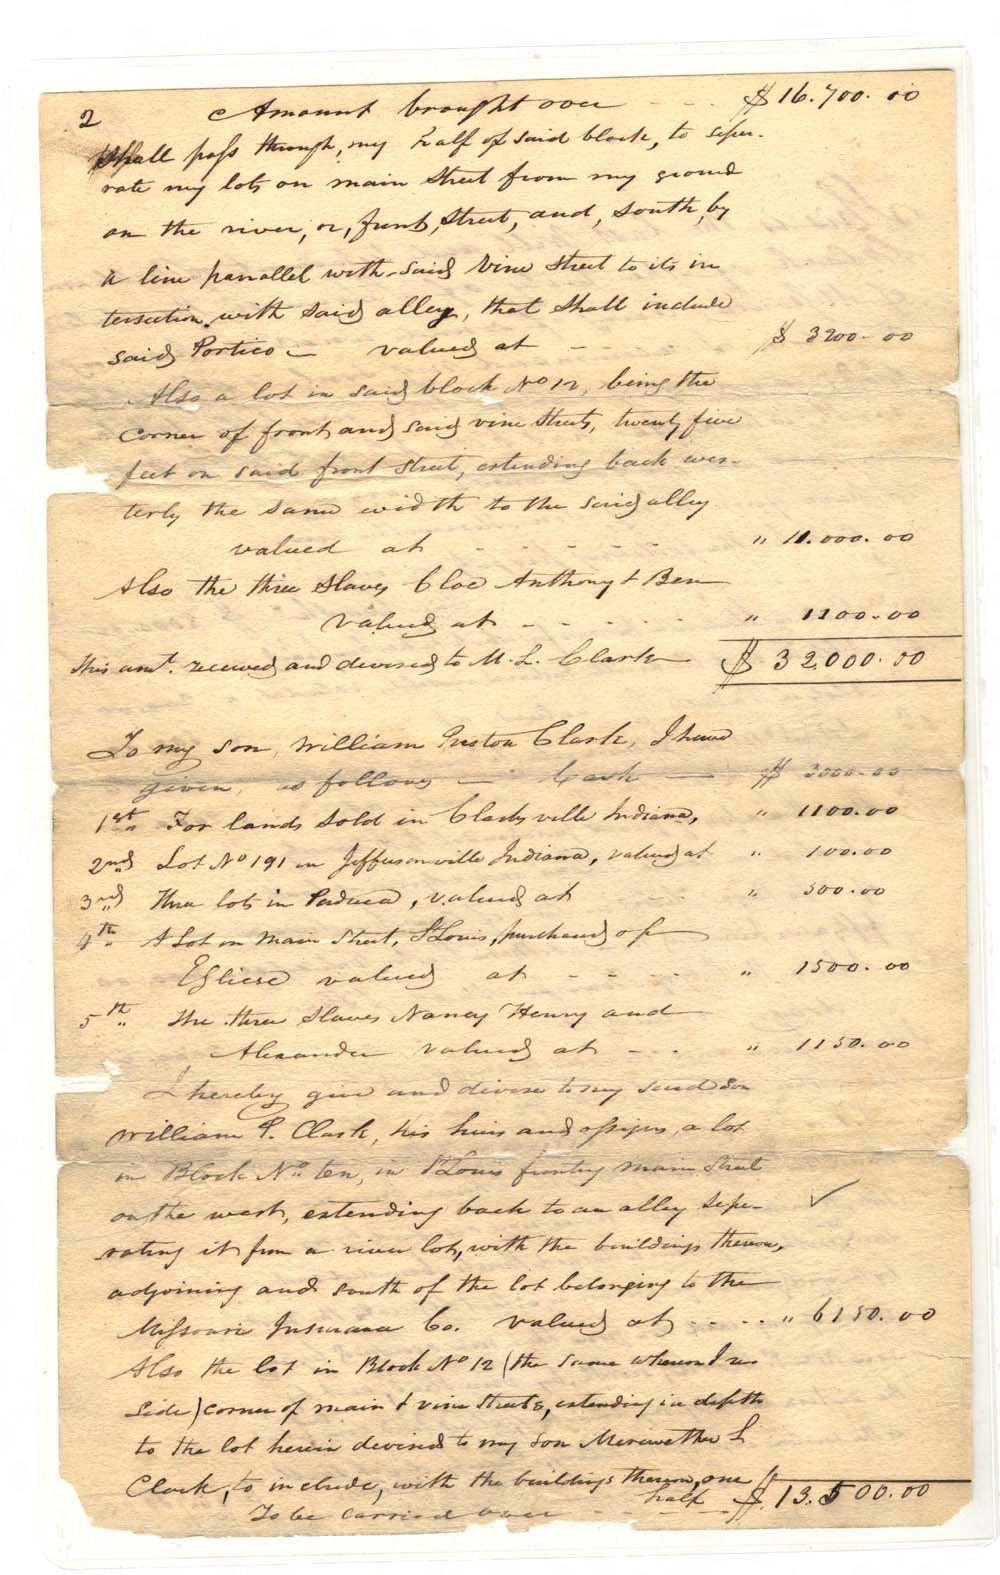 2 Amount brought over - - - $ 16.700. 00
shall pass through, my half of said block, to sepe-
rate my lots on main Street from my ground
on the river, or, front, Street, and, South, by
a line parrallel with said Vine Street to its in
tersection with said alley, that shall include
said Portico — valued at - - - - $ 3200. 00
Also a lot in said block No 12, being the
corner of front and said vine Streets, twenty five
feet on said front Street, extending back wes-
terly the same width to the said alley
valued at - - - - - " 11.000. 00
Also the three Slaves Cloe Anthony & Ben
valued at - - - - - " 1100.00
this amt. received and devised to M. L. Clark $ 32000.00
To my son, William Preston Clark, I have
given, as follows — Cash — $ 3000.00
1st " For lands Sold in Clarksville Indiana, " 1100.00
2nd " Lot No 191 in Jeffersonville Indiana, valued at " 100.00
3rd " three lots in Paduca, valued at - - - " 500.00
4th " A Lot on Main Street, St Louis, purchased of
Egliese valued at - - - - " 1500. 00
5th " the three Slaves Nancy Henry and
Alexander valued at - - - " 1150.00
I hereby give and divise to my said son
William P. Clark, his heirs and assigns, a lot
in Block No ten, in St Louis fronting main Street
on the west, extending back to an alley sepe-
rating it from a river lot, with the buildings thereon,
adjoining and south of the lot belonging to the
Missouri Insurance Co. valued at - - - - " 6150. 00
Also the lot in Block No 12 (the same whereon I re
side) corner of main & vine Streets, extending in depth
to the lot herein devised to my son Meriwether L
Clark, to include, with the buildings thereon, one
half $ 13.500.00
To be carried over - - - -